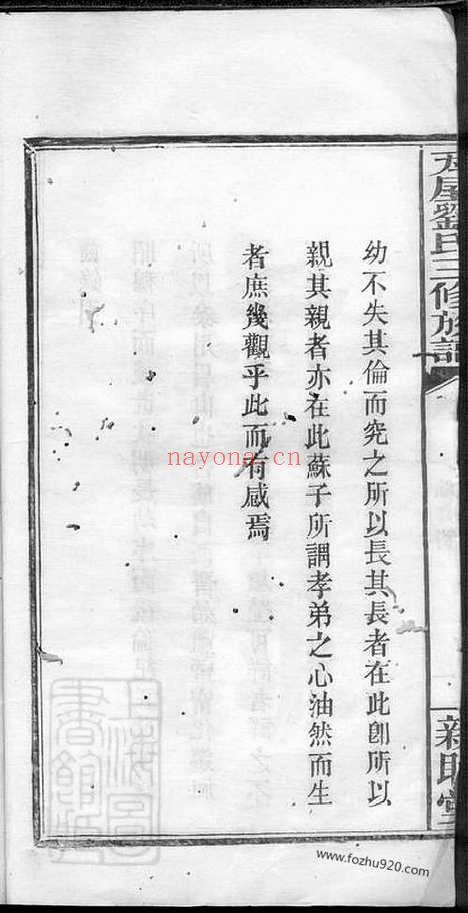 劉氏三修族譜
幼不失其倫而究之所以長其長者在此卽所以
親其親者亦在此蘇子所謂孝弟之心油然而生
者庶幾觀乎此而有感焉
nayona.cn
上海圖書館藏
www.fozhu920.com